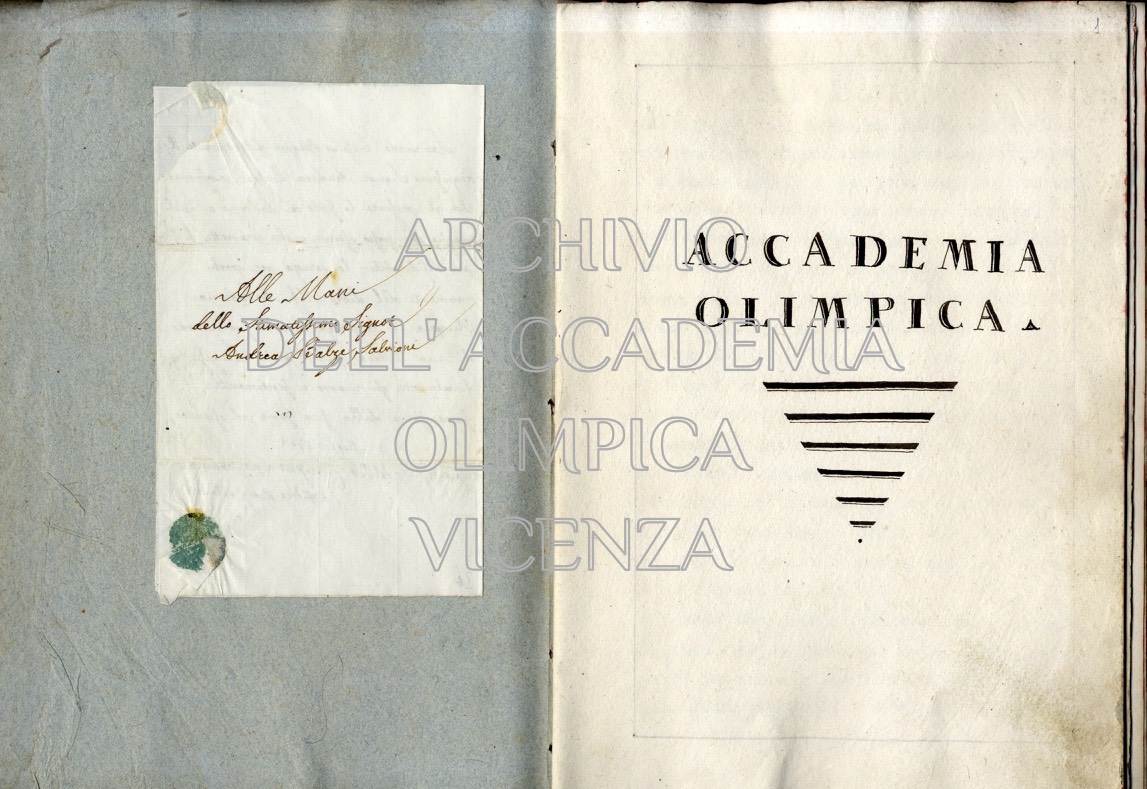 Alle Mani
dello Stimatissimo Signor
Andrea Balze Salvioni
1
ACCADEMIA
OLIMPICA.
ARCHIVIO
DELL'ACCADEMIA
OLIMPICA
VICENZA